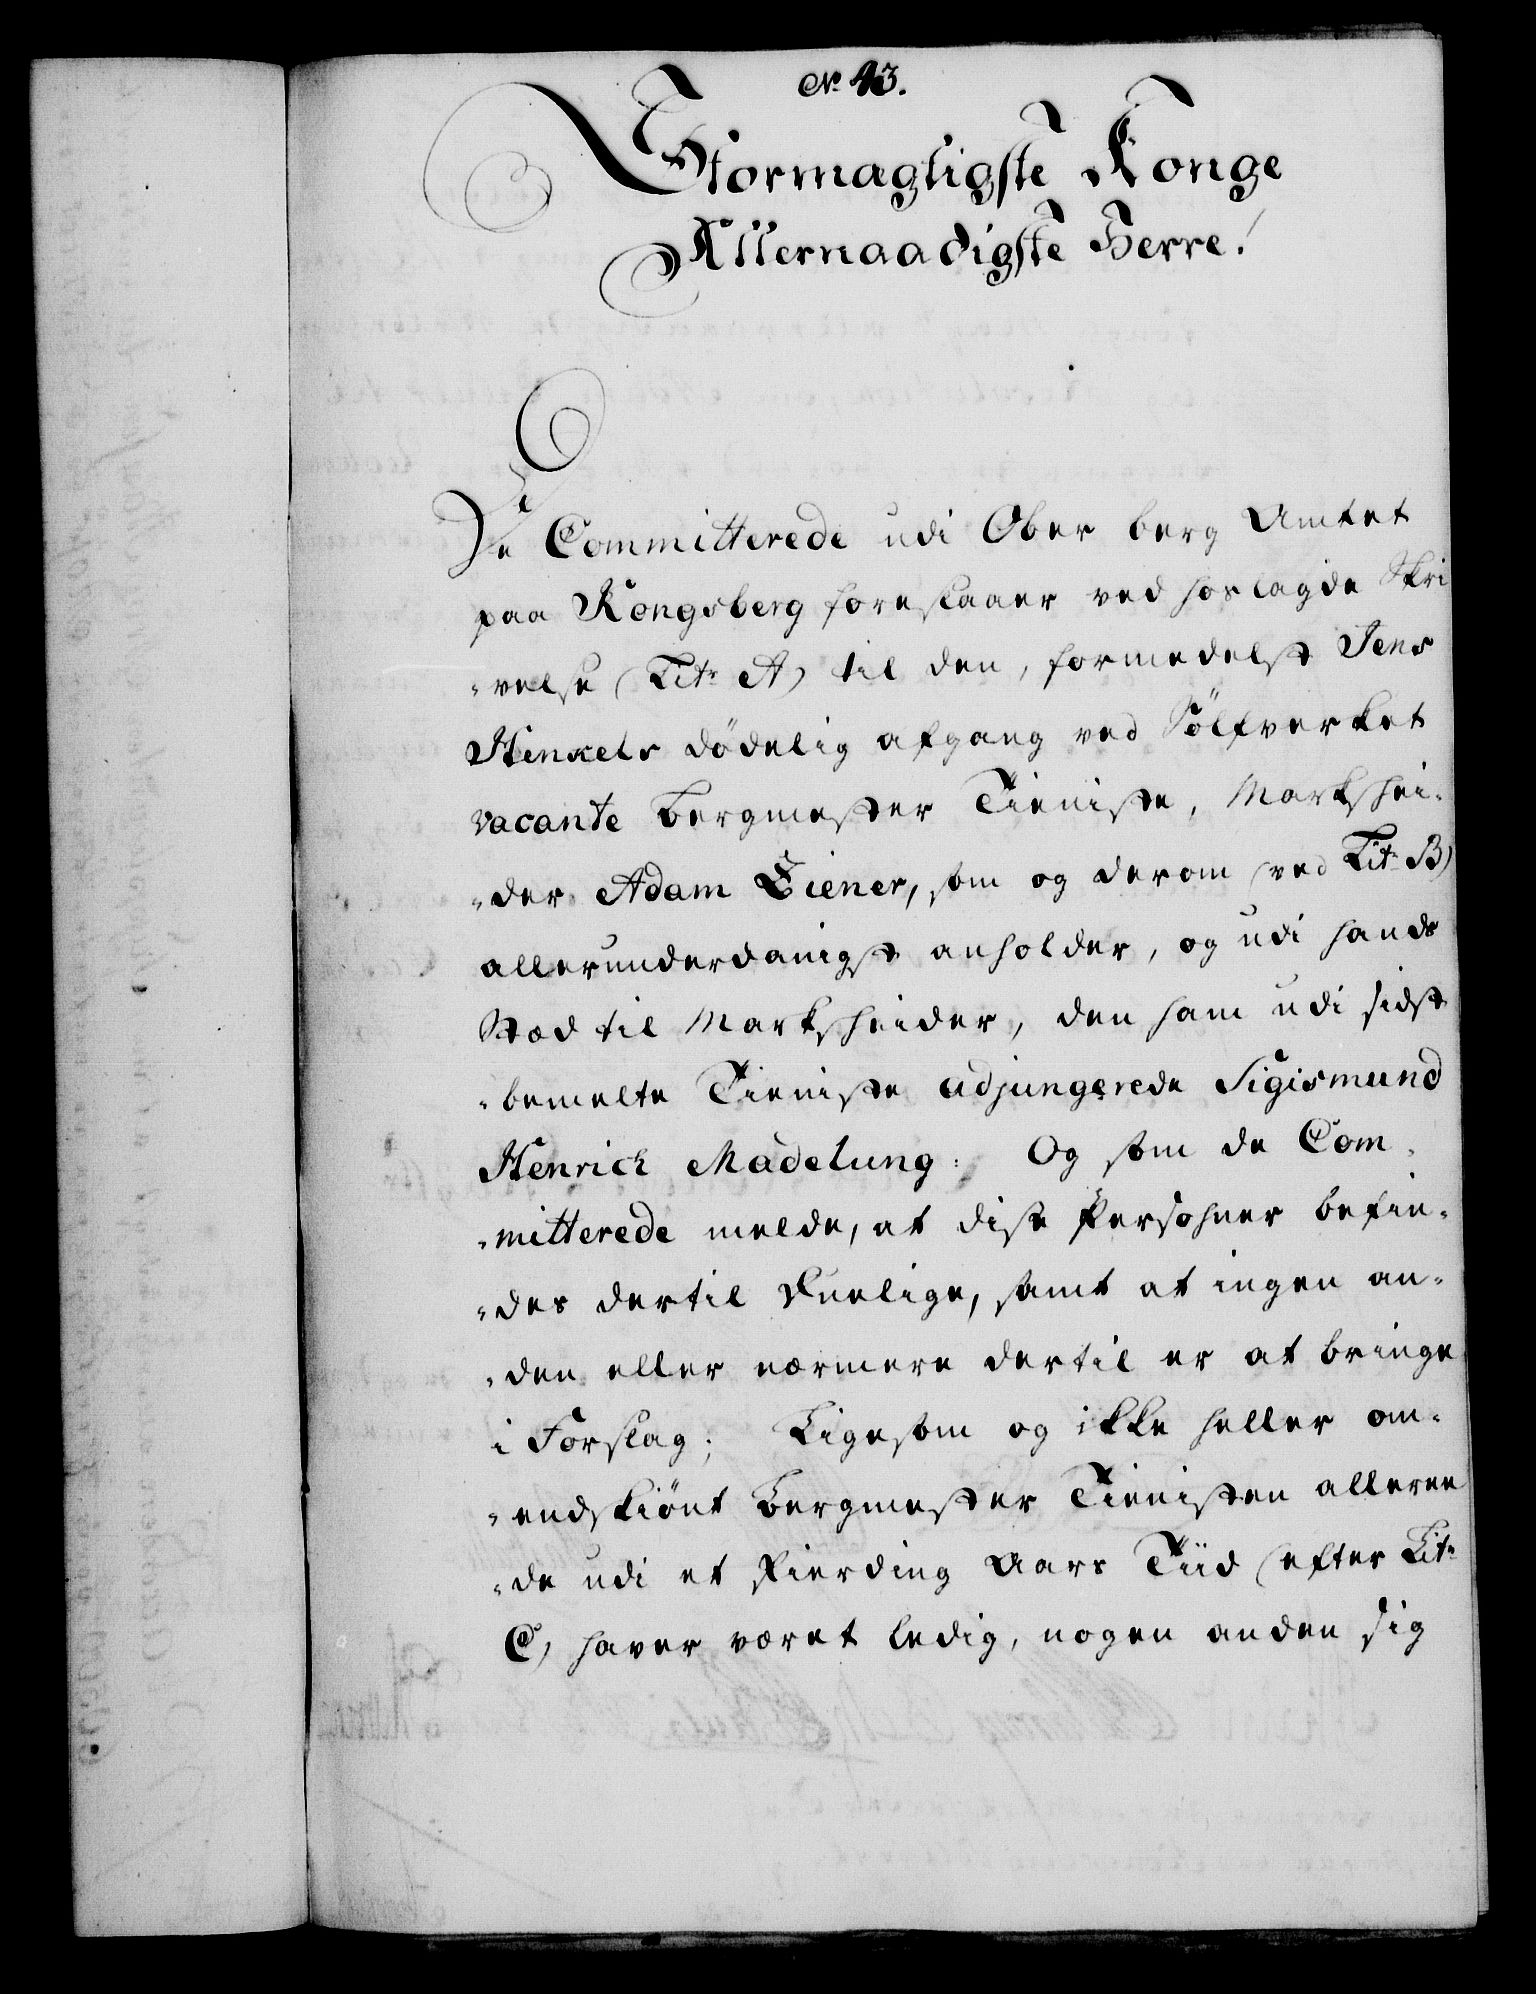 No 43.
Stormagtigste Konge
Allernaadigste Herre!
De Committerede udi Ober berg Amtet
paa Kongsberg foreslaaer ved hoslagde Skri
-velse (Litr A) til den, formedelst Jens
Henkels dødelig afgang ved Sølfverket
vacante Bergmester Tieniste, Markshei-
-der Adam Ziener, som og derom (ved Litr B)
allerunderdanigst anholder, og udi hands
Stæd til Marksheider, den ham udi sidst
-bemelte Tieniste adjungerede Sigismund
Henrich Madelung: Og som de Com-
-mitterede melde, at disse Persohner befin-
-des dertil duelige, samt at ingen an-
-den eller nærmere dertil er at bringe
i Forslag; Ligesom og ikke heller om-
-endskiønt Bergmester Tienisten alleree
-de udi et Fierding Aars Tiid (efter Litr
C) haver været ledig, nogen anden sig